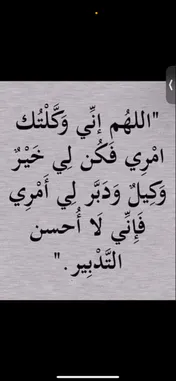 "اللهُم إنِّي وَكَّلْتُك
امْرِي فَكُن لِي خَيْرٌ
وَكِيلٌ وَدَبَّر لِي أَمْرِي
فَإنِّي لَا أُحسن
التَّدْبِير."